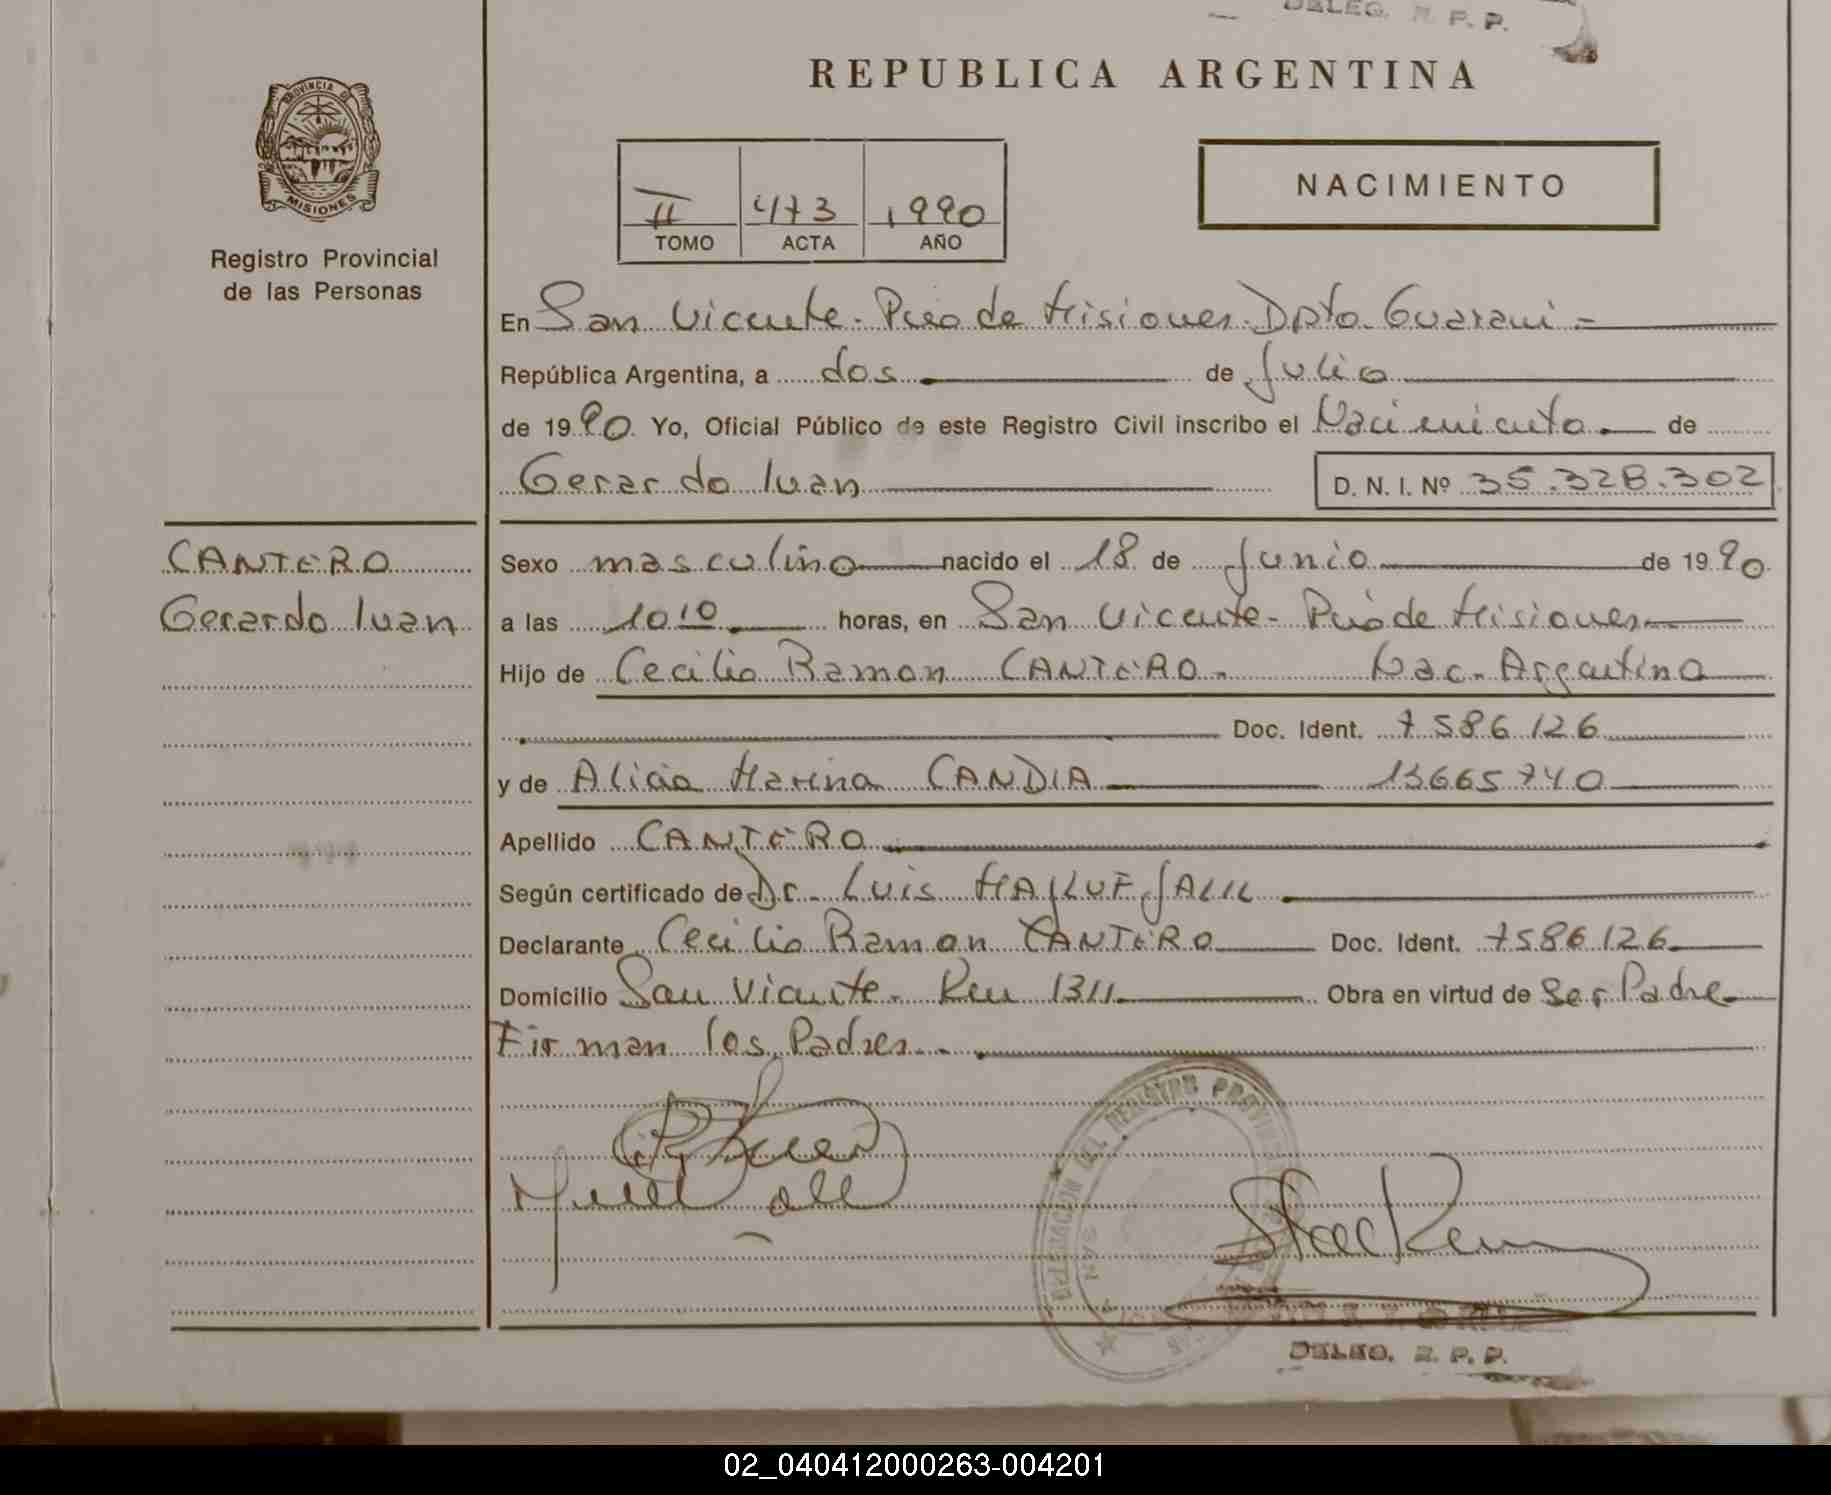 DELEG. R. P. P.
REPUBLICA ARGENTINA
PROVINCIA DE
MISIONES
Registro Provincial
de las Personas
II 473 1990
TOMO ACTA AÑO
NACIMIENTO
En San Vicente - Pcia de Misiones - Dpto. Guarani =
República Argentina, a dos de Julio
de 1990 Yo, Oficial Público de este Registro Civil inscribo el Nacimiento de
Gerardo Iuan D. N. I. Nº 35.328.302
CANTERO
Gerardo Iuan
Sexo masculino nacido el 18 de Junio de 1990
a las 10 10 horas, en San Vicente - Pcia de Misiones
Hijo de Cecilio Ramon CANTERO - Nac - Argentina
Doc. Ident. 7586126
y de Alicia Marina CANDIA 13665740
Apellido CANTERO
Según certificado de Dr. Luis MAJLUF JALIL
Declarante Cecilio Ramon CANTERO Doc. Ident. 7586126
Domicilio San Vicente - Km 1311 Obra en virtud de Ser Padre
Firman los Padres -
DEL REGISTRO PROVINCIAL
DELEG. R. P. P.
02_040412000263-004201